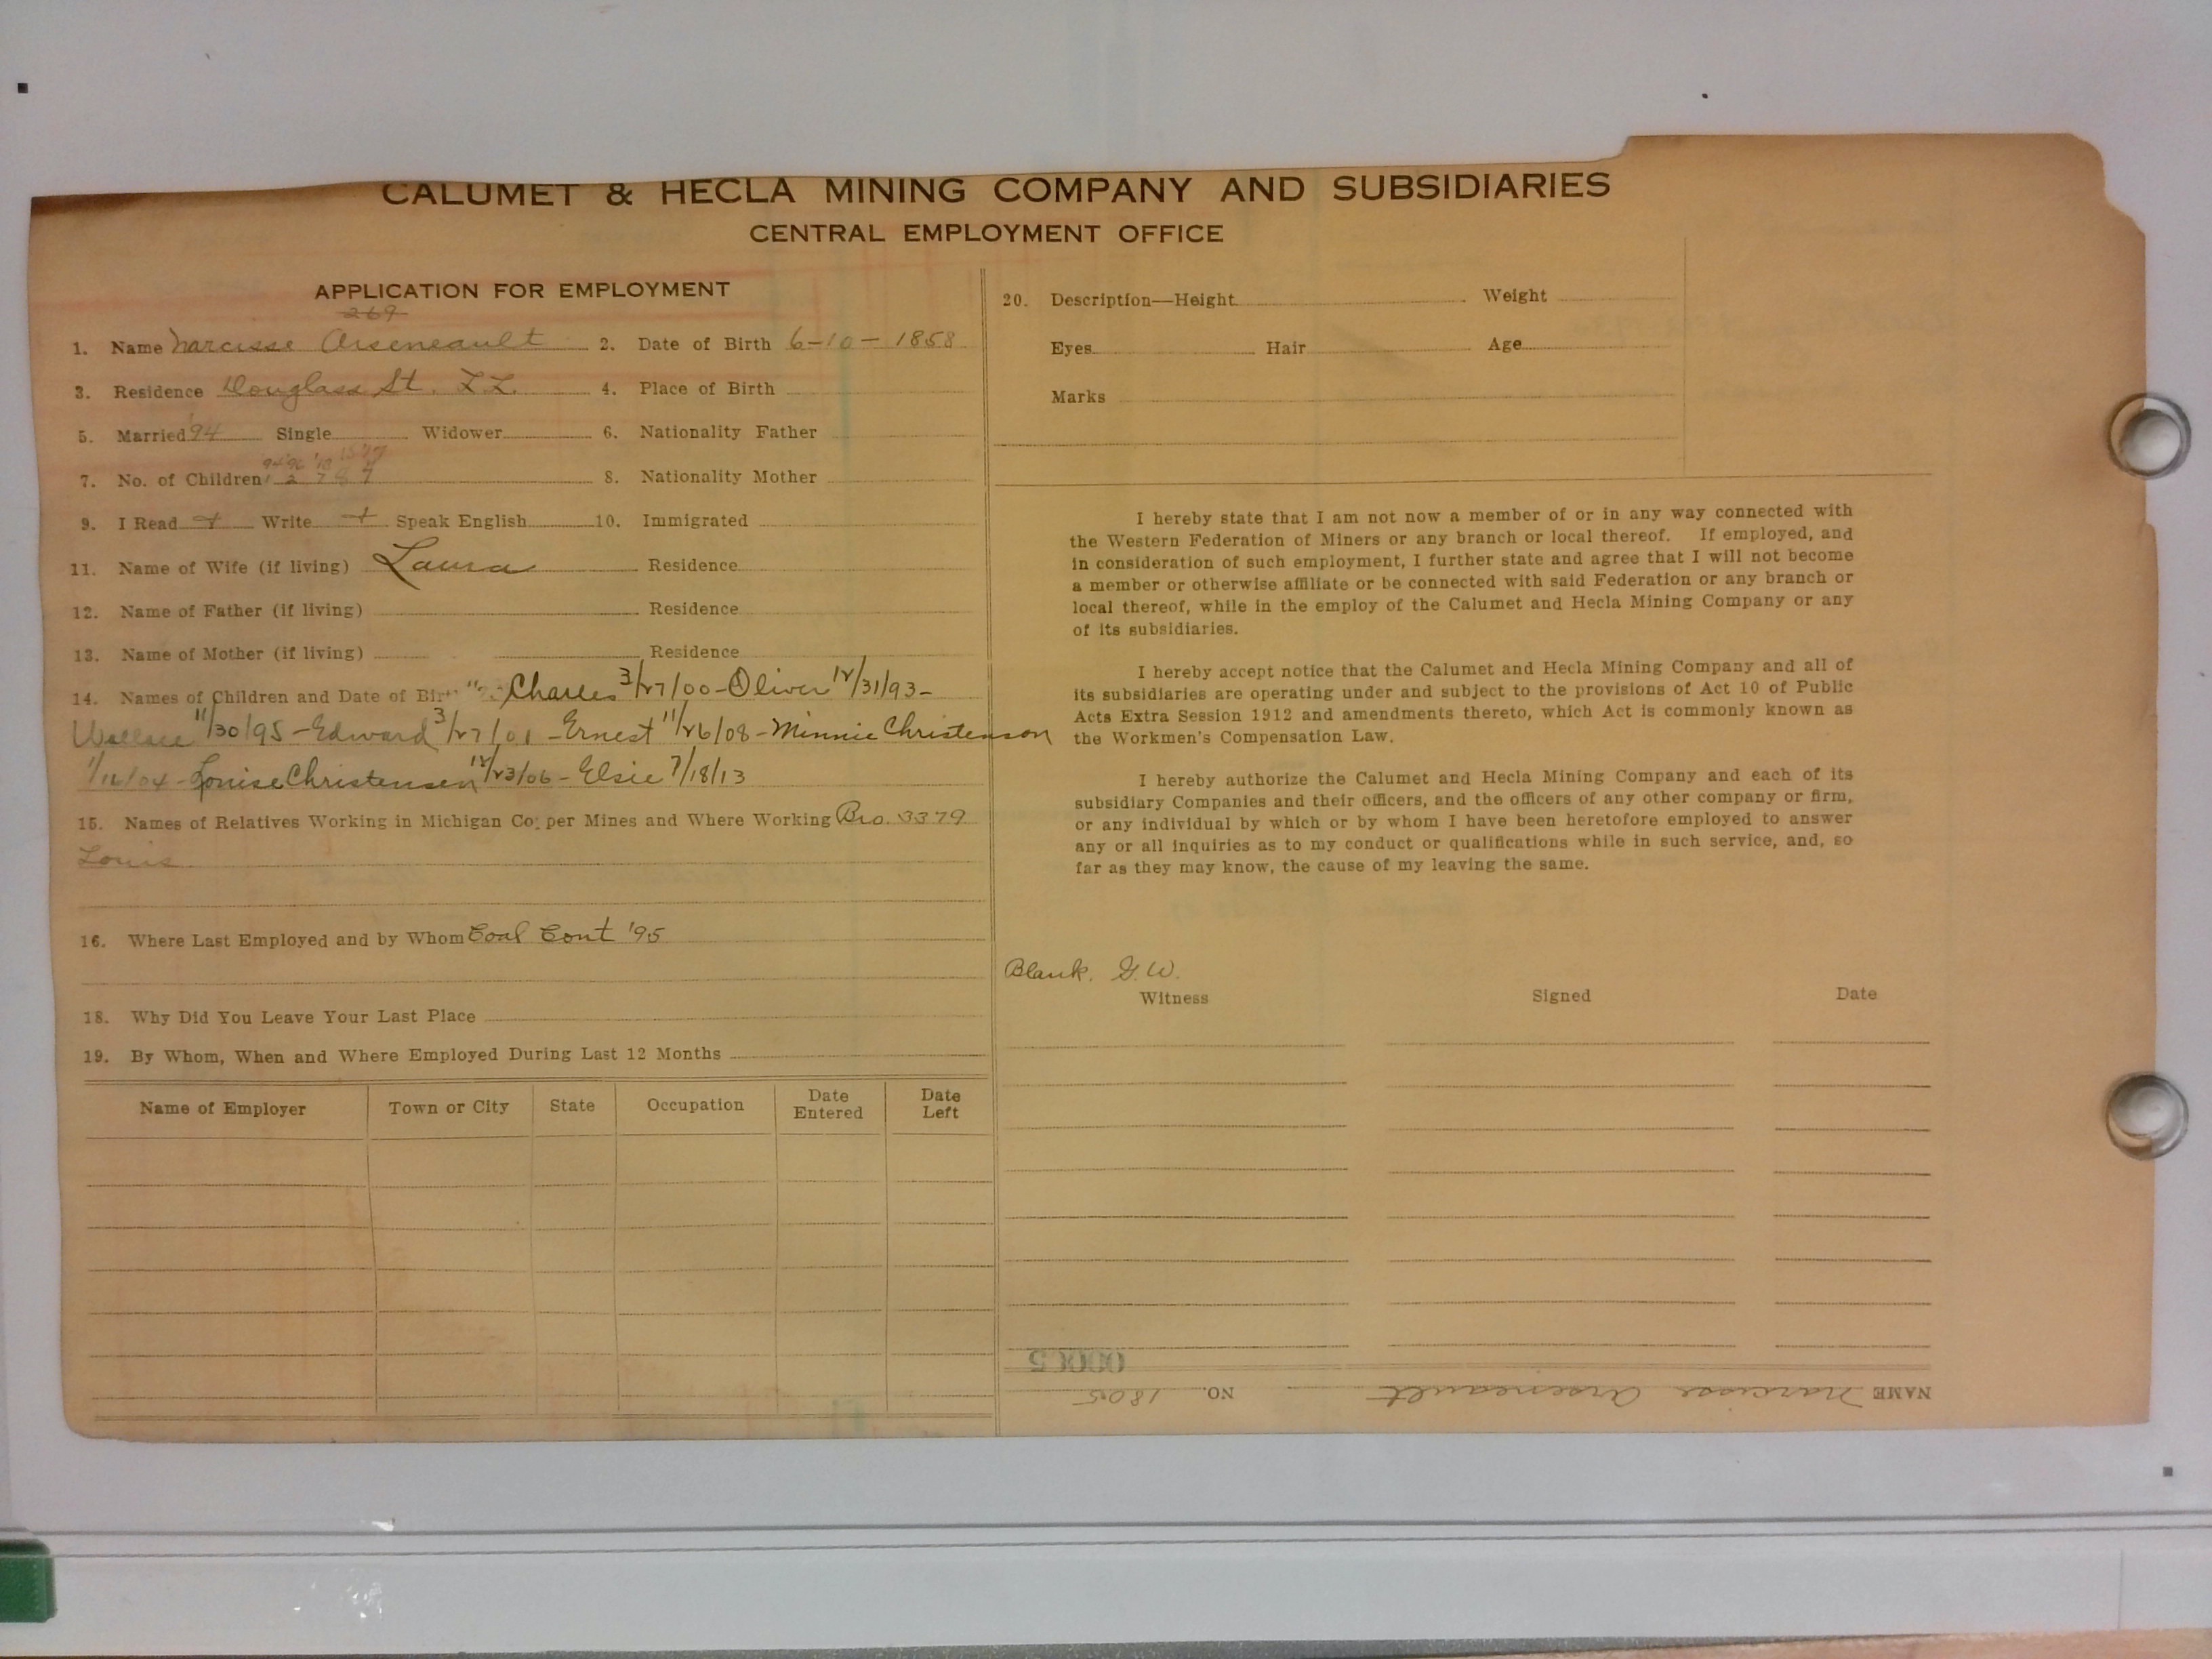 CALUMET & HECLA MINING COMPANY AND SUBSIDIARIES
CENTRAL EMPLOYMENT OFFICE
APPLICATION FOR EMPLOYMENT
269
1. Name Narcisse Arseneault 2. Date of Birth 6-10-1858
3. Residence Douglass St. L.L. 4. Place of Birth
5. Married '94 Single Widower 6. Nationality Father
7. No. of Children 8. Nationality Mother
9. I Read + Write + Speak English 10. Immigrated
11. Name of Wife (if living) Laura Residence
12. Name of Father (if living) Residence
13. Name of Mother (if living) Residence
14. Names of Children and Date of Birth Charles 3/27/00 - Oliver 12/31/93 -
Wallace 11/30/95 - Edward 3/27/01 - Ernest 11/26/08 - Minnie Christenson
- Louise Christensen 12/23/06 - Elsie 7/18/13
15. Names of Relatives Working in Michigan Copper Mines and Where Working Bro. 3379
Louis
16. Where Last Employed and by Whom Coal Cont '95
18. Why Did You Leave Your Last Place
19. By Whom, When and Where Employed During Last 12 Months
Name of Employer Town or City State Occupation Date Entered Date Left
20. Description—Height Weight
Eyes Hair Age
Marks
I hereby state that I am not now a member of or in any way connected with
the Western Federation of Miners or any branch or local thereof. If employed, and
in consideration of such employment, I further state and agree that I will not become
a member or otherwise affiliate or be connected with said Federation or any branch or
local thereof, while in the employ of the Calumet and Hecla Mining Company or any
of its subsidiaries.
I hereby accept notice that the Calumet and Hecla Mining Company and all of
its subsidiaries are operating under and subject to the provisions of Act 10 of Public
Acts Extra Session 1912 and amendments thereto, which Act is commonly known as
the Workmen's Compensation Law.
I hereby authorize the Calumet and Hecla Mining Company and each of its
subsidiary Companies and their officers, and the officers of any other company or firm,
or any individual by which or by whom I have been heretofore employed to answer
any or all inquiries as to my conduct or qualifications while in such service, and, so
far as they may know, the cause of my leaving the same.
Blank. G.W.
Witness Signed Date
NAME Narcisse Arseneault NO. 1805